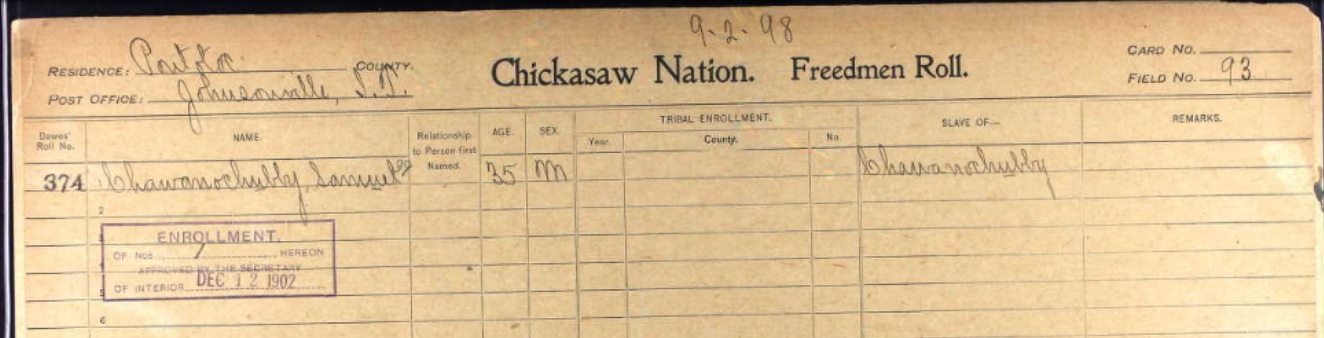 9-2-98
RESIDENCE: Pontotoc COUNTY.
POST OFFICE: Johnsonville, I.T.
Chickasaw Nation. Freedmen Roll.
CARD NO.
FIELD NO. 93
Dawes' Roll No. NAME. Relationship to Person first Named. AGE. SEX. TRIBAL ENROLLMENT. Year. County. No. SLAVE OF— REMARKS.
374 Chawanochubby, Samuel 35 M Chawanochubby
2
ENROLLMENT.
OF NOS. 1 HEREON
APPROVED BY THE SECRETARY
OF INTERIOR DEC 12 1902
5
6